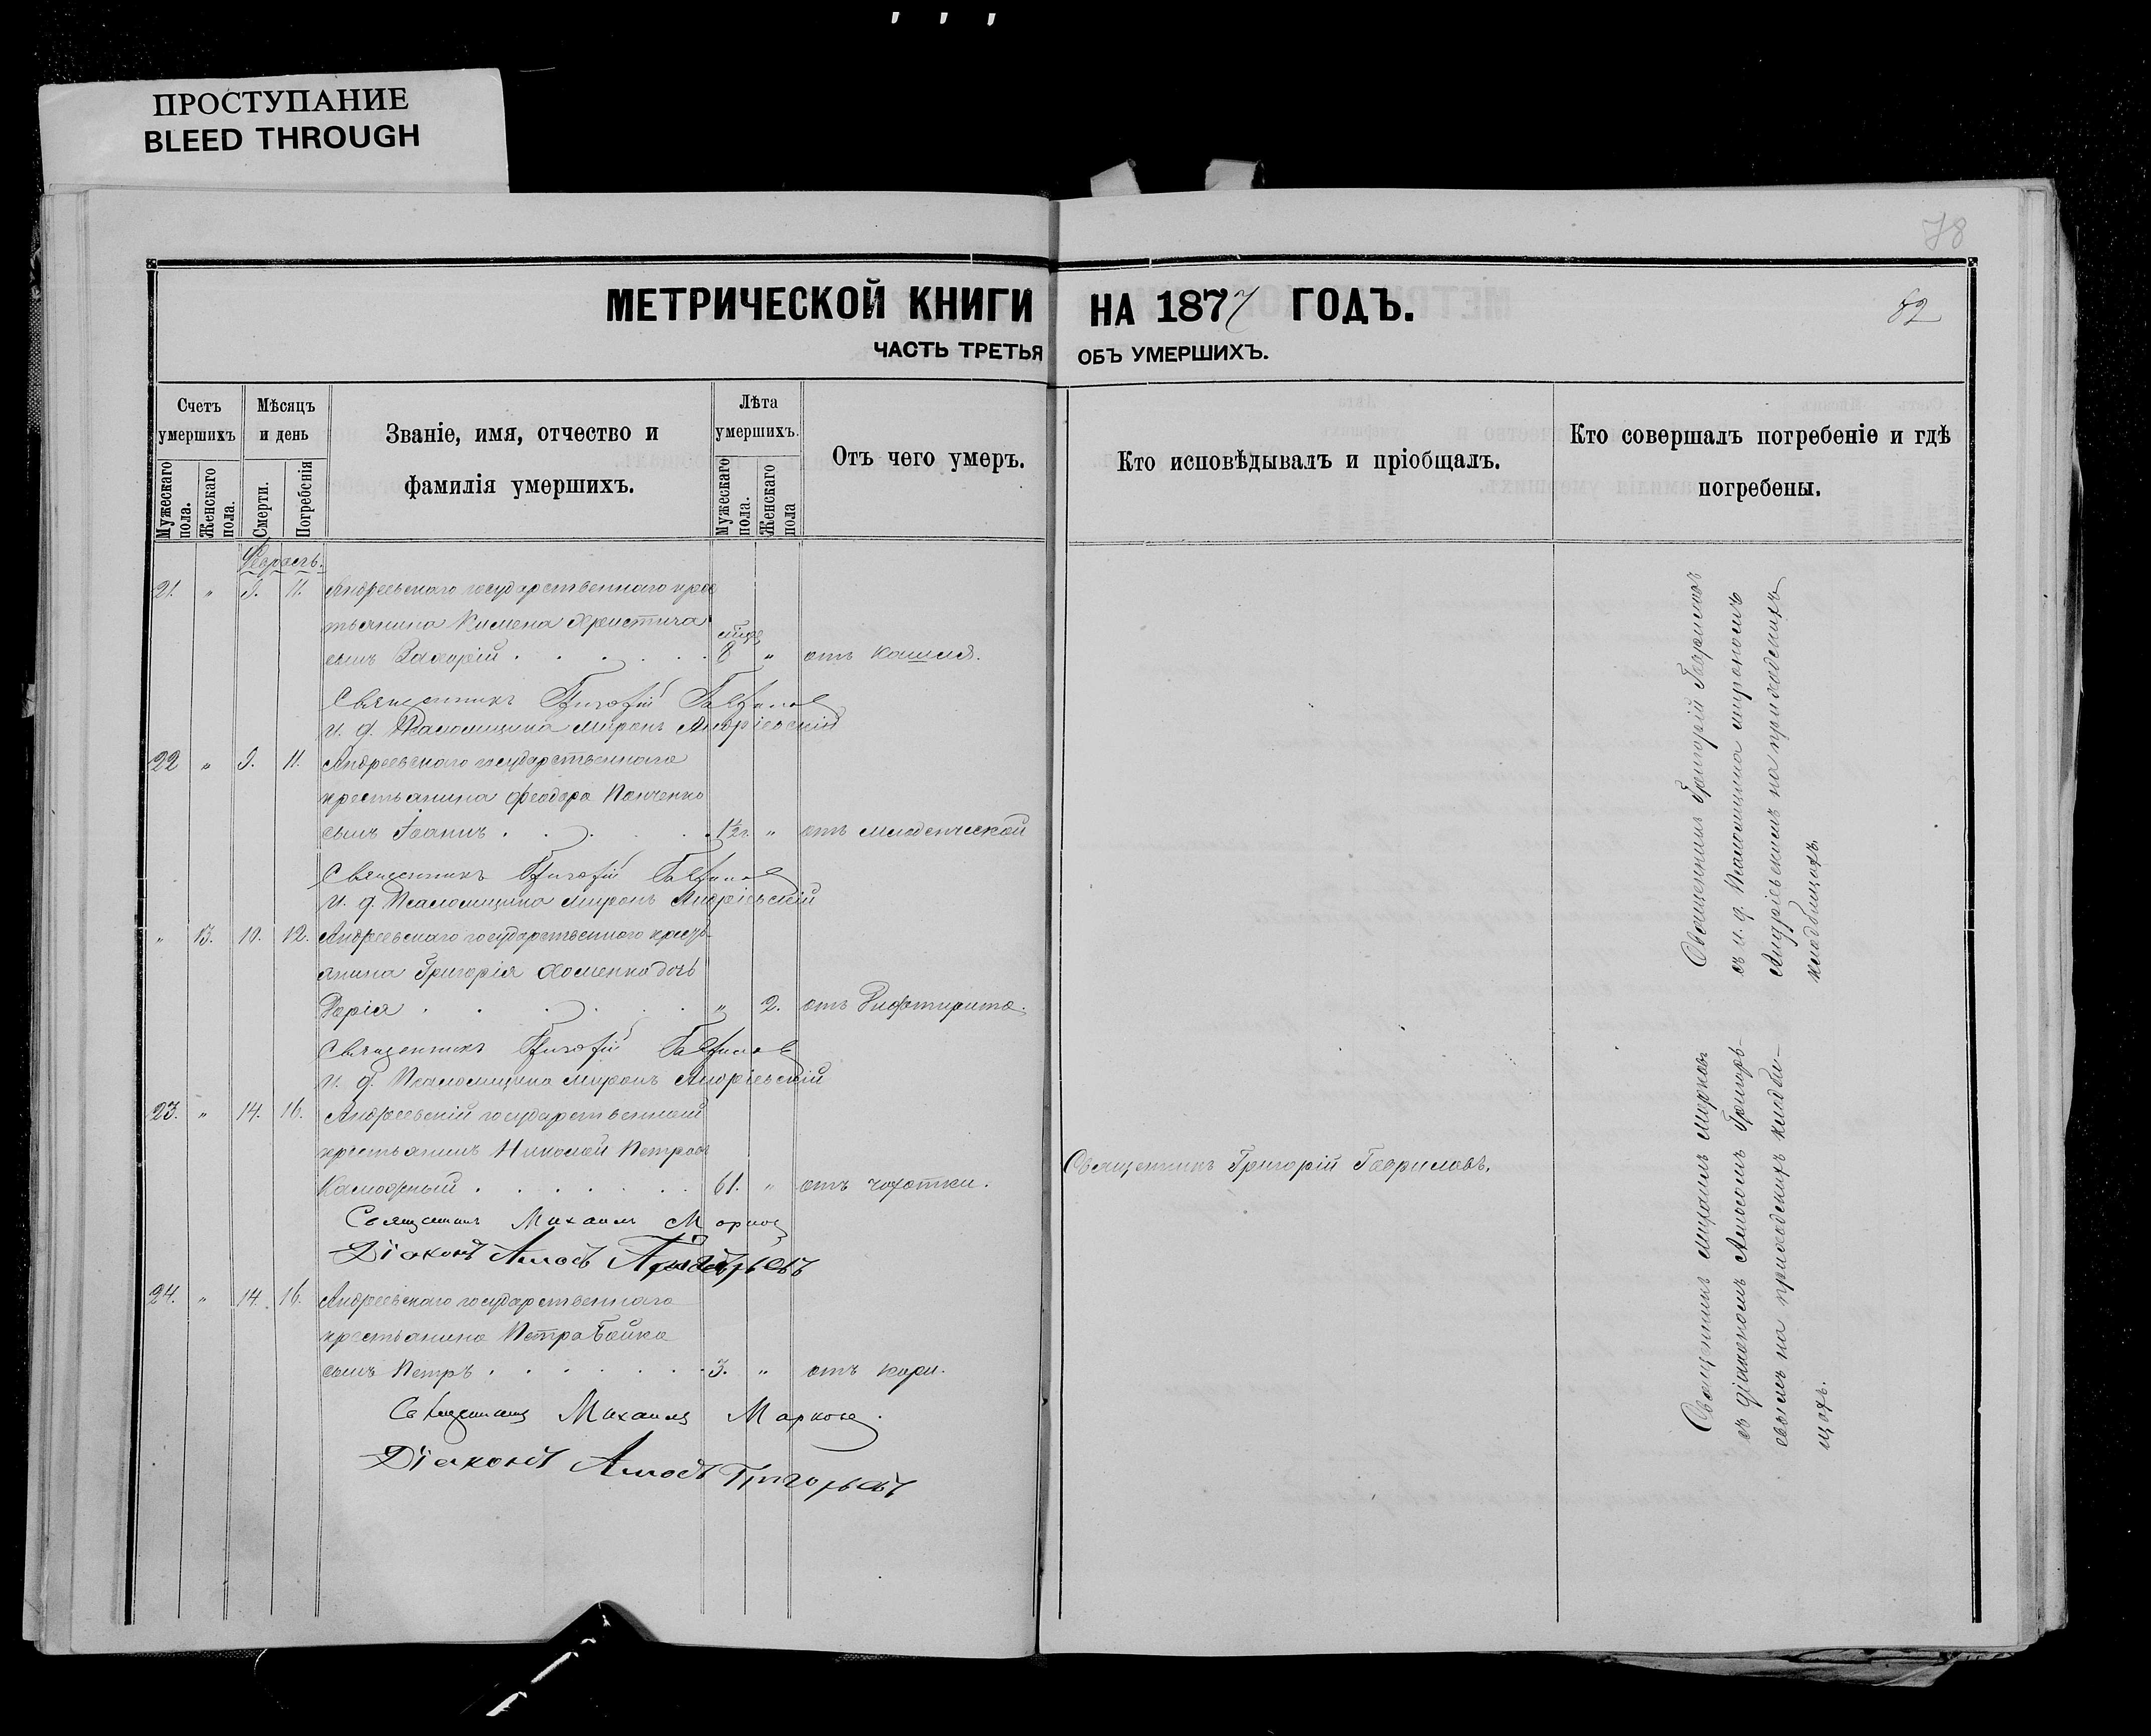 ПРОСТУПАНИЕ
BLEED THROUGH
78
МЕТРИЧЕСКОЙ КНИГИ НА 1877 ГОДЪ.
82
ЧАСТЬ ТРЕТЬЯ ОБЪ УМЕРШИХЪ.
Счетъ умершихъ
Мѣсяцъ и день
Званіе, имя, отчество и фамилія умершихъ.
Лѣта умершихъ.
Отъ чего умеръ.
Кто исповѣдывалъ и пріобщалъ.
Кто совершалъ погребеніе и гдѣ погребены.
Мужескаго пола.
Женскаго пола.
Смерти.
Погребенія
Мужескаго пола.
Женскаго пола
Февраль.
21. " 9. 11. Андреевскаго государственнаго крес
тьянина Кимена Христича
сынъ Захарій . . . . . 8 " отъ кашля.
Священникъ Григорій Гаврилов
И. д. Псаломщика Миронъ Андріевскій
22 " 9. 11. Андреевскаго государственнаго
крестьянина Феодора Панченко
сынъ Іоаннъ . . . . 1½ г. " отъ младенческой
Священникъ Григорій Гаврилов
И. д. Псаломщика Миронъ Андріевскій
" 13. 10. 12. Андреевскаго государственнаго кресть-
янина Григорія Хоменко дочь
Дарія . . . . . . " 2. отъ Дифтирита.
Священникъ Григорій Гаврилов
И. д. Псаломщика Миронъ Андріевскій
23. " 14. 16. Андреевскій государственный
крестьянинъ Николай Петровъ
. . . . . . 61. " отъ чахотки.
Священникъ Григорій Гавриловъ.
Священникъ Михаилъ Марков
Діаконъ Амосъ Григорьевъ
24. " 14. 16. Андреевскаго государственнаго
крестьянина Петра Бойка
сынъ Петръ . . . . . . 3. " отъ кори.
Священникъ Михаилъ Марков
Діаконъ Амосъ Григорьевъ
Священникъ Григорій Гавриловъ
съ и. д. Псаломщика Мирономъ
Андріевскимъ на приходскихъ
кладбищахъ.
Священникъ Михаилъ Марковъ
съ діакономъ Амосомъ Григорь-
евымъ на приходскихъ кладби-
щахъ.